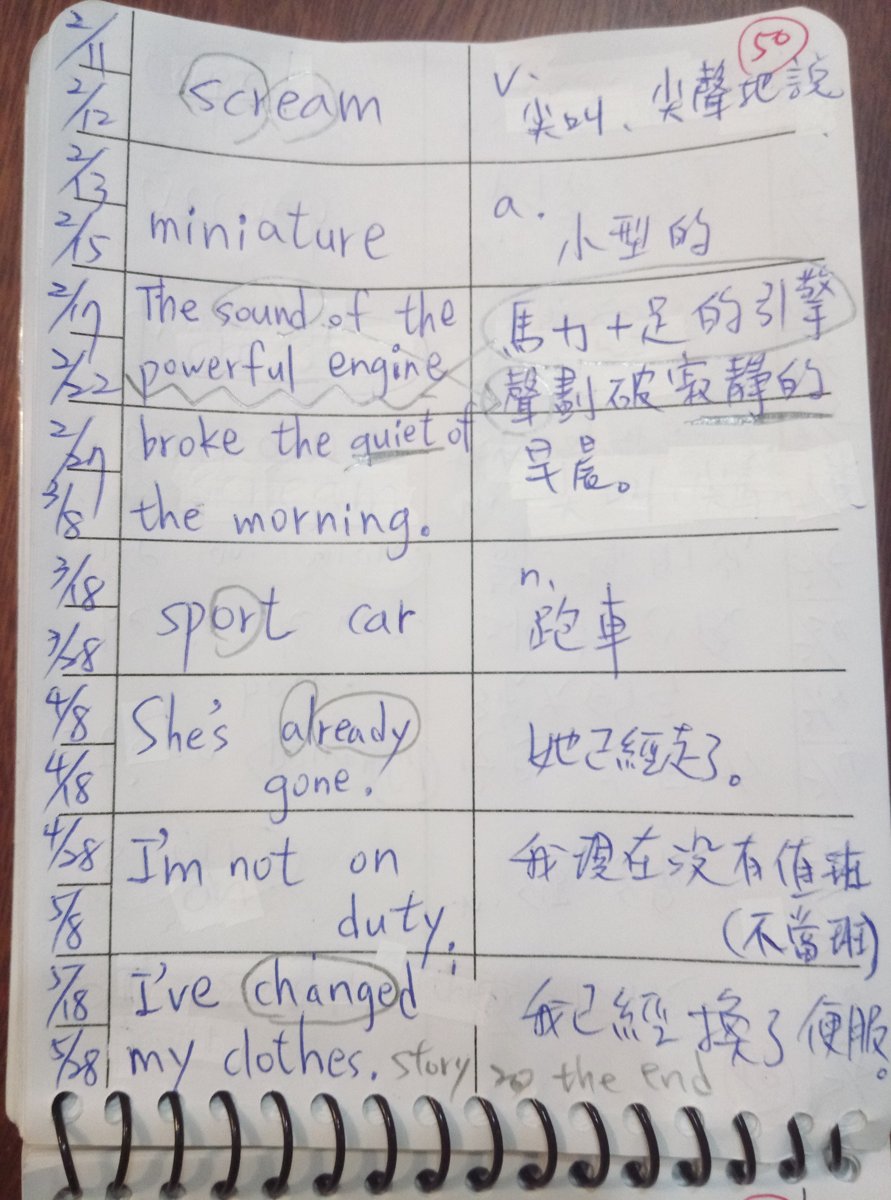 50
2/11
2/12
scream
v.
尖叫、尖聲地說
2/13
2/15
miniature
a.
小型的
2/17
2/22
The sound of the
powerful engine
馬力十足的引擎
聲劃破寂靜的
2/27
3/8
broke the quiet of
the morning.
早晨。
3/18
3/28
sport car
n.
跑車
4/8
4/18
She's already
gone.
她已經走了。
4/28
5/8
I'm not on
duty.
我現在没有值班
(不當班)
5/18
5/28
I've changed
my clothes.
我已經換了便服。
story to the end